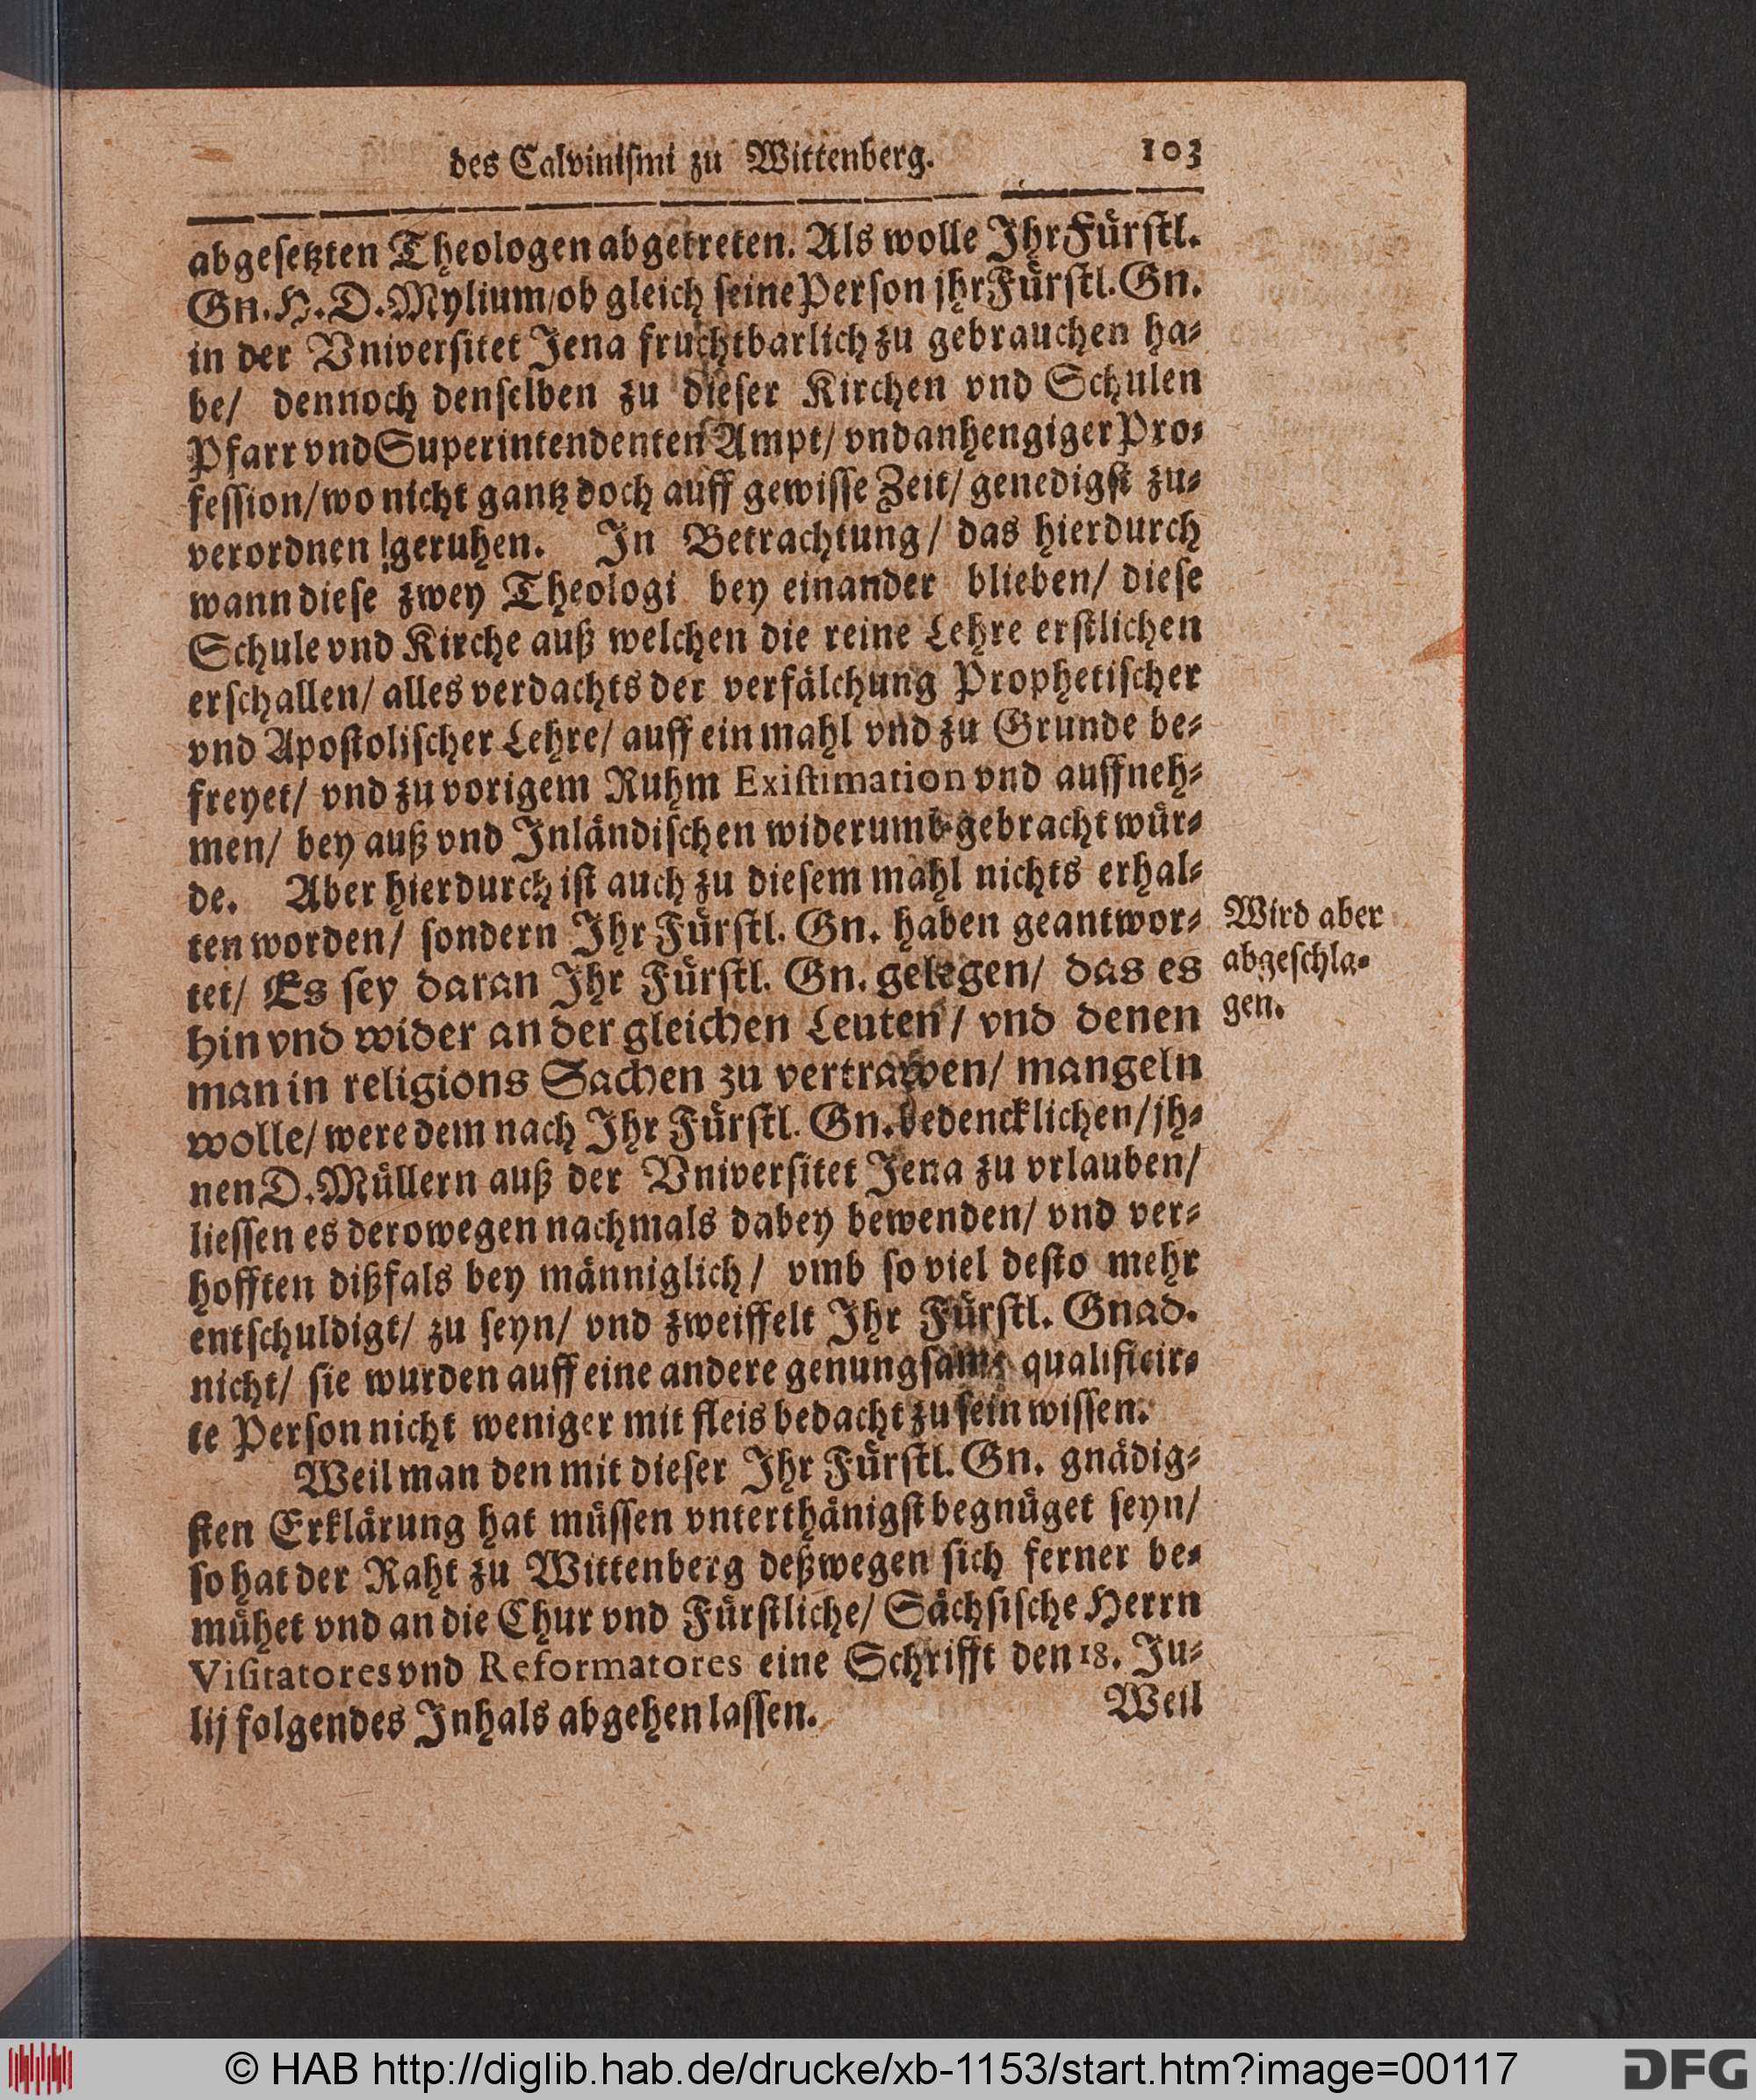 des Calviniſmi zu Wittenberg. 103
abgeſetzten Theologen abgetreten. Als wolle Ihr Fürſtl.
Gn. H. D. Mylium/ ob gleich ſeine Perſon jhr Fürſtl. Gn.
in der Vniverſitet Jena fruchtbarlich zu gebrauchen ha⸗
be/ dennoch denſelben zu dieſer Kirchen vnd Schulen
Pfarr vnd Superintendenten Ampt/ vnd anhengiger Pro⸗
feſſion/ wo nicht gantz doch auff gewiſſe Zeit/ genedigſt zu⸗
verordnen geruhen. In Betrachtung/ das hierdurch
wann dieſe zwey Theologi bey einander blieben/ dieſe
Schule vnd Kirche auß welchen die reine Lehre erſtlichen
erſchallen/ alles verdachts der verfälchung Prophetiſcher
vnd Apoſtoliſcher Lehre/ auff ein mahl vnd zu Grunde be⸗
freyet/ vnd zu vorigem Ruhm Exiſtimation vnd auffneh⸗
men/ bey auß vnd Inländiſchen widerumb gebracht wür⸗
de. Aber hierdurch iſt auch zu dieſem mahl nichts erhal⸗
ten worden/ ſondern Ihr Fürſtl. Gn. haben geantwor⸗
tet/ Es ſey daran Ihr Fürſtl. Gn. gelegen/ das es
hin vnd wider an der gleichen Leuten/ vnd denen
man in religions Sachen zu vertrawen/ mangeln
wolle/ were dem nach Ihr Fürſtl. Gn. bedencklichen/ jh⸗
nen D. Müllern auß der Vniverſitet Jena zu vrlauben/
lieſſen es derowegen nachmals dabey bewenden/ vnd ver⸗
hofften dißfals bey männiglich/ vmb ſo viel deſto mehr
entſchuldigt/ zu ſeyn/ vnd zweiffelt Ihr Fürſtl. Gnad.
nicht/ ſie wurden auff eine andere genungſame qualificir⸗
te Perſon nicht weniger mit fleis bedacht zu ſein wiſſen.
Weil man den mit dieſer Ihr Fürſtl. Gn. gnädig⸗
ſten Erklärung hat müſſen vnterthänigſt begnüget ſeyn/
ſo hat der Raht zu Wittenberg deßwegen ſich ferner be⸗
mühet vnd an die Chur vnd Fürſtliche/ Sächſiſche Herrn
Viſitatores vnd Reformatores eine Schrifft den 18. Ju⸗
lij folgendes Inhals abgehen laſſen.
Weil
Wird aber
abgeſchla⸗
gen.
© HAB http://diglib.hab.de/drucke/xb-1153/start.htm?image=00117
DFG